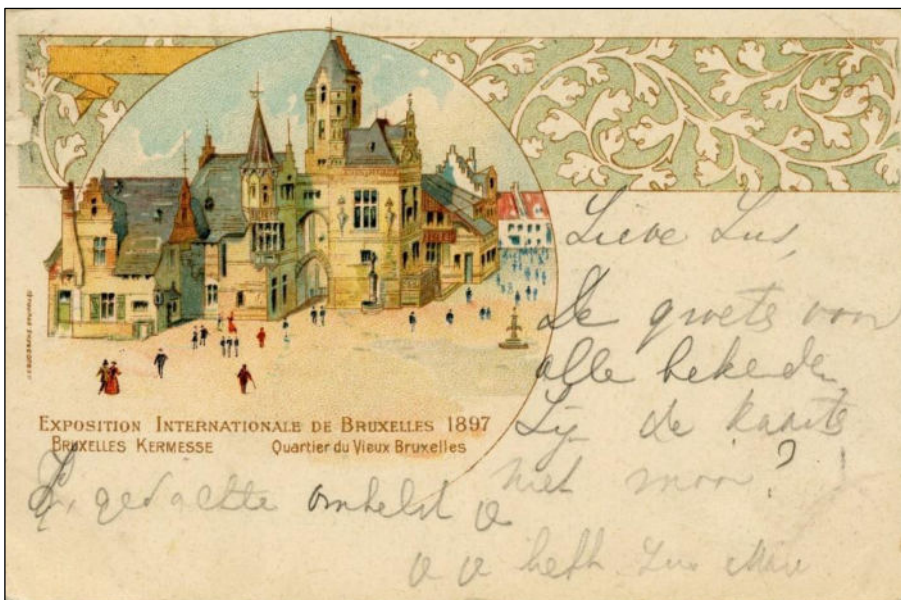 EXPOSITION INTERNATIONALE DE BRUXELLES 1897
BRUXELLES KERMESSE Quartier du Vieux Bruxelles
Lieve Lus,
De groets voor
alle bekenden
de kaarts
niet moor?
gedachte omhelst U